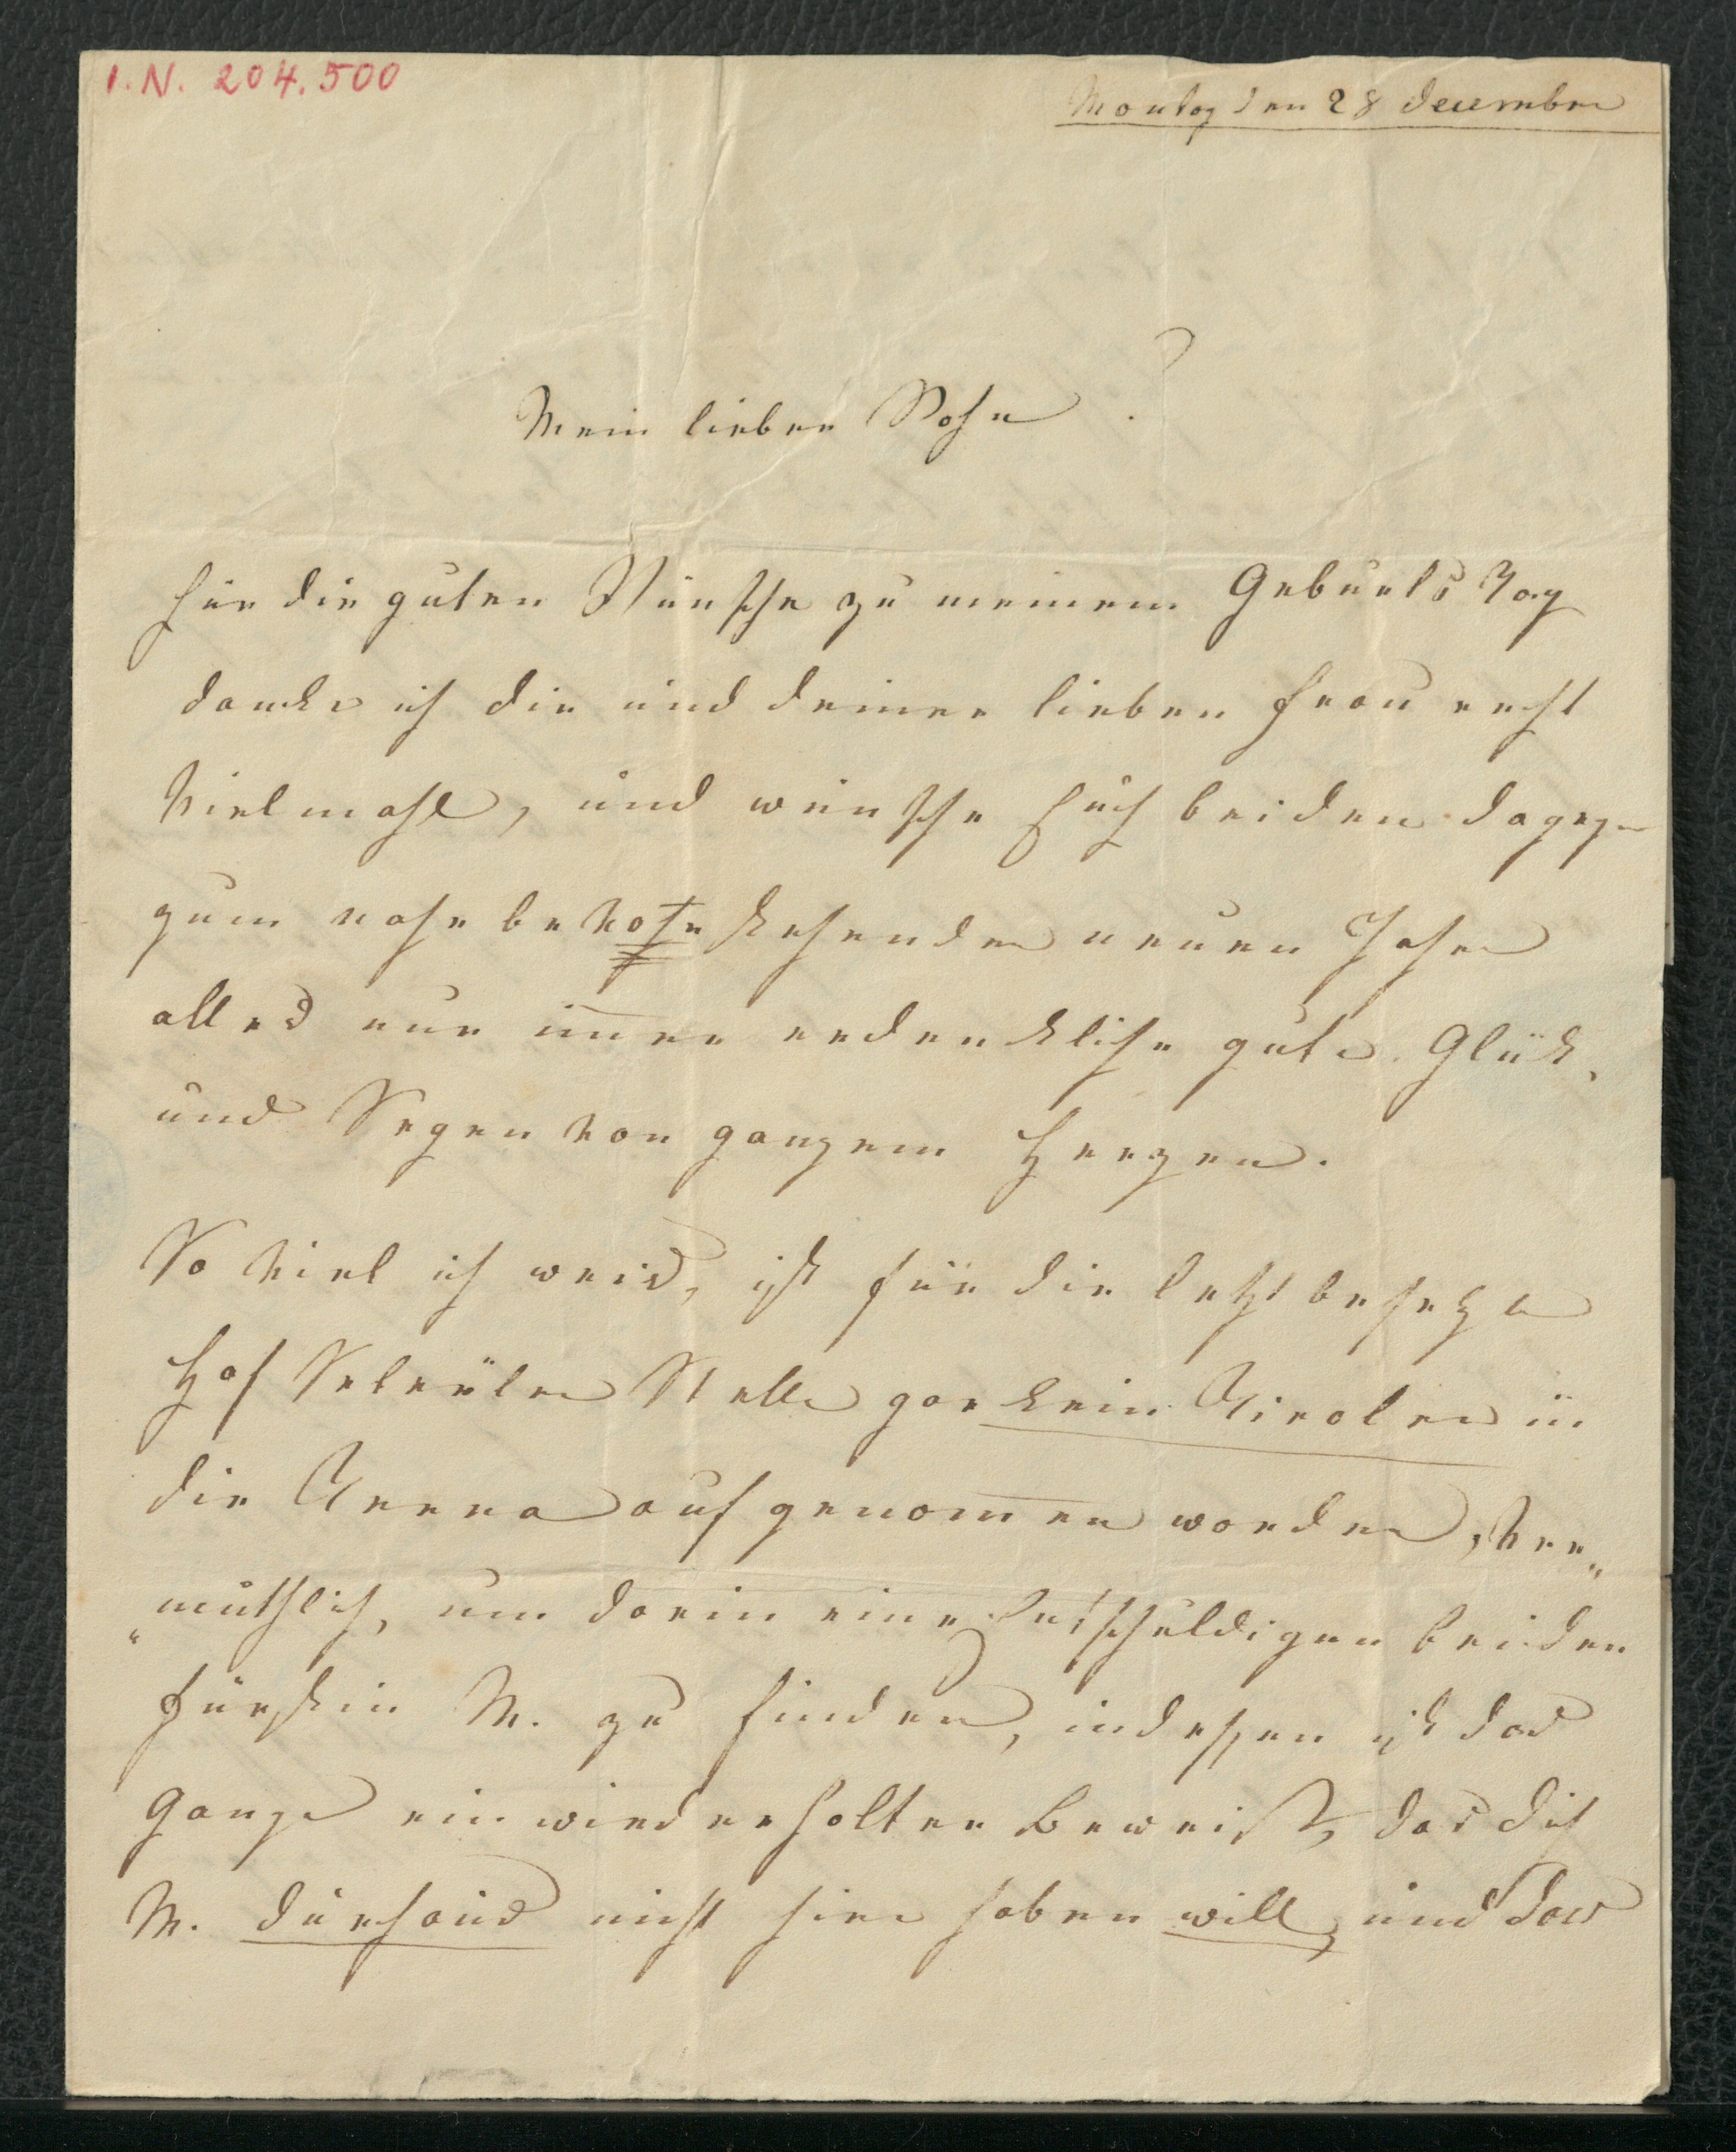 I.N. 204.500
Montag den 28 december
Mein lieber Sohn!
Für die guten Wünsche zu meinem Geburts Tag
dancke ich dir und deiner lieben Frau recht
vielmahls, und wünsche Euch beiden dagegen
zum nahe bevor stehenden neuen Jahre
alles nur immer erdenckliche gute. Glük,
und Segen von ganzem Herzen.
So viel ich weis, ist für die letzt besezte
Hof Secretär Stelle gar kein Tiroler in
die Terna aufgenommen worden, ver„
„muthlich, um darin eine Entschuldigen bei der
Fürstin M. zu finden, indessen ist das
Ganze ein wiederholter Beweiß, das dich
M. durhaus nicht hier haben will, und das